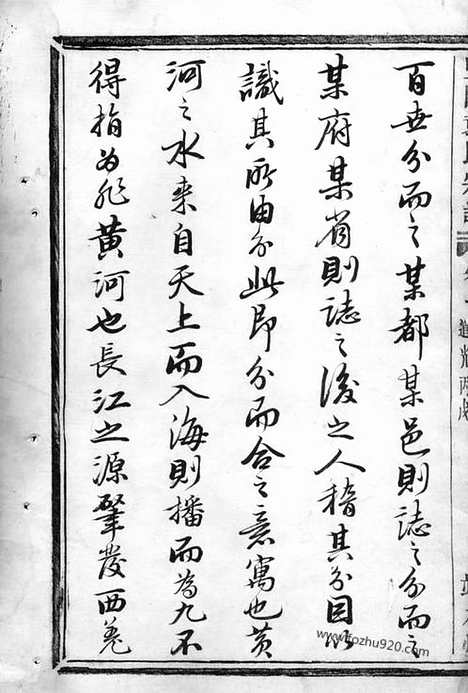 百世分而之某都某邑則誌之分而之
某府某省則誌之後之人稽其分目以
識其所由分此即分而合之意寓也黃
河之水来自天上而入海則播而為九不
得指为非黃河也長江之源肇发西羌
www.fozhu920.com